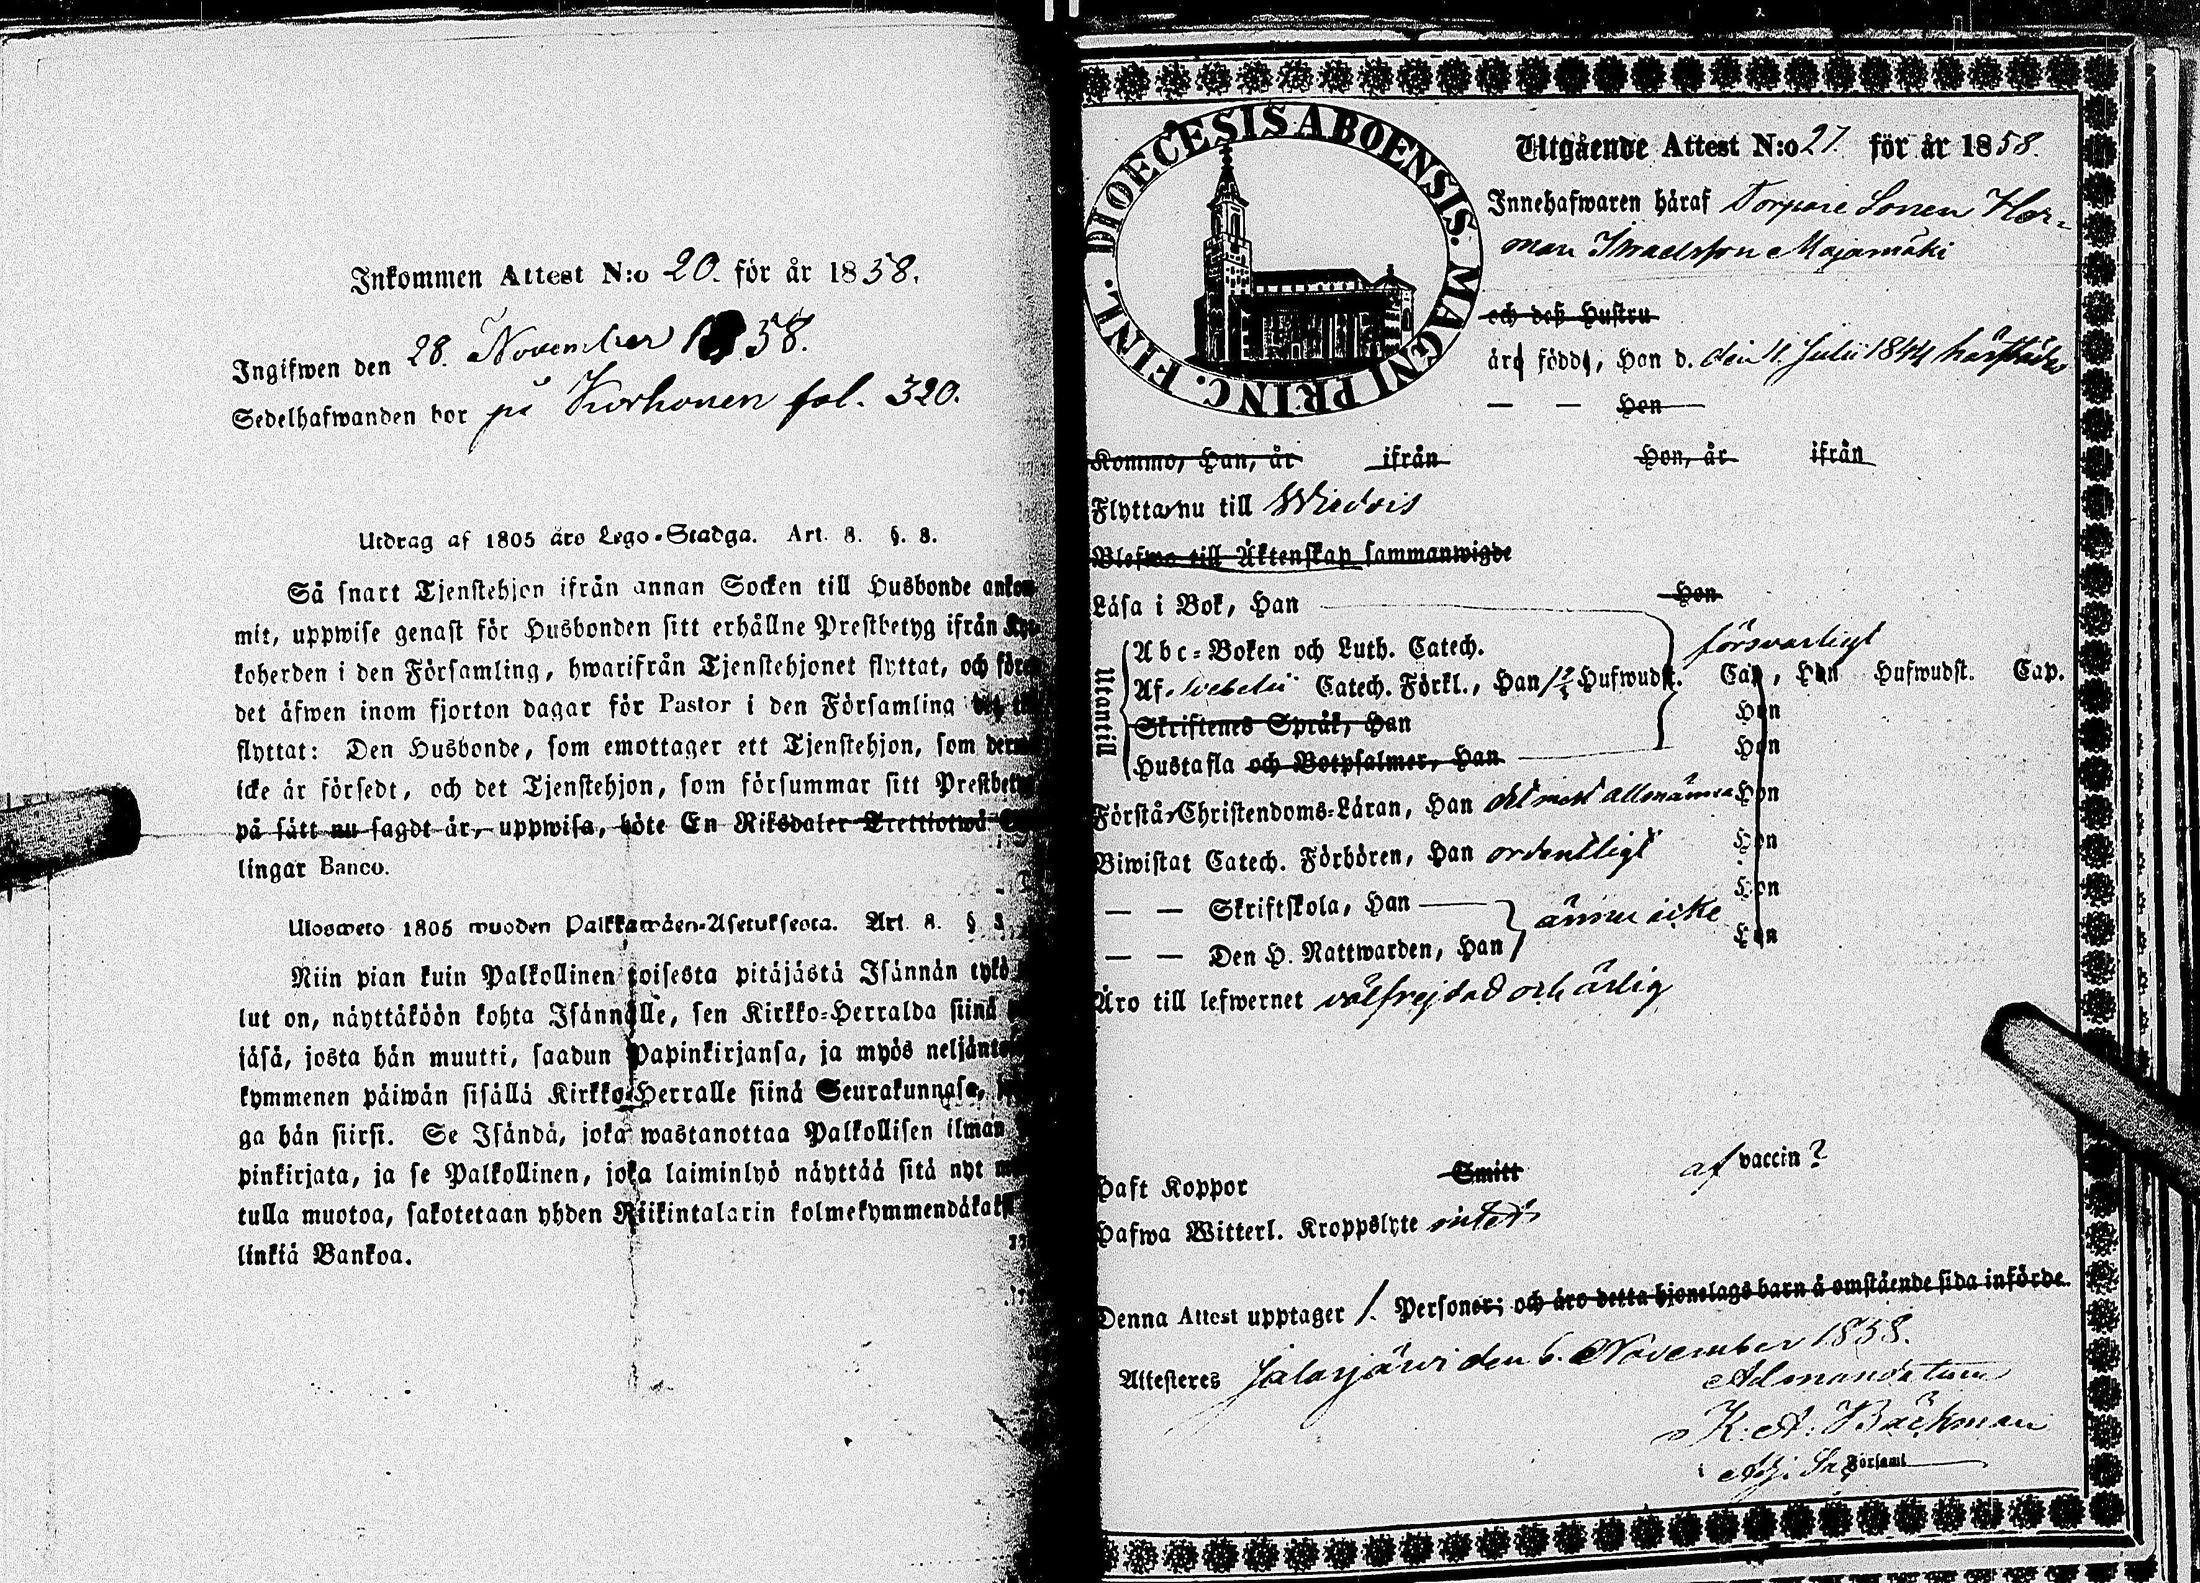 Inkommen Attest N:o 20. för år 1858.
Ingifwen den 28. November 1858.
Sedelhafwanden bor på Korhonen fol. 320.
Utdrag af 1805 års Lego-Stadga. Art. 8. §. 8.
Så snart Tjenstehjon ifrån annan Socken till Husbonde ankom-
mit, uppwise genast för Husbonden sitt erhållne Prestbetyg ifrån Kyr-
koherden i den Församling, hwarifrån Tjenstehjonet flyttat, och före
det äfwen inom fjorton dagar för Pastor i den Församling
flyttat: Den Husbonde, som emottager ett Tjenstehjon, som
icke är försedt, och det Tjenstehjon, som försummar sitt Prestbetyg
på sätt nu sagdt är, uppwisa, böte En Riksdaler Trettiotwå
lingar Banco.
Ulosweto 1805 wuoden Palkkawäen-Asetuksesta. Art. 8. § 8
Niin pian kuin Palkollinen toisesta pitäjästä Isännän tykö
lut on, näyttäköön kohta Isännälle, sen Kirkko-Herralda siinä
jäsä, josta hän muutti, saadun Papinkirjansa, ja myös neljäntoista
kymmenen päiwän sisällä Kirkko-Herralle siinä Seurakunnasa,
ga hän siirsi. Se Isändä, joka wastanottaa Palkollisen ilman
pinkirjata, ja se Palkollinen, joka laiminlyö näyttää sitä nyt
tulla muotoa, sakotetaan yhden Riikintalarin kolmekymmendäkaksi
linkiä Bankoa.
DIOECESIS ABOENSIS. MAGNI PRINC. FINL.
Utgående Attest N:o 27 för år 1858.
Innehafwaren häraf Torpare Sonen Her-
man Israelsson Majamäki
och deß Hustru
äro födde, Han d. den 11. Julii 1844 härstädes
— — Hon
Komme, Han, år ifrån Hon, år ifrån
Flyttar nu till Wirdois
Blefwo till Äktenskap sammanwigde
Läsa i Bok, Han Hon
Utantill
Abc-Boken och Luth. Catech. försvarligt
Af Svebelii Catech. Förkl., Han Hufwudst. Cap, Hon Hufwudst. Cap.
Skriftenes Språk, Han Hon
Hustafla och Botpsalmer, Han Hon
Förstår Christendoms-Läran, Han det mest allmänna Hon
Biwistat Catech. Förhören, Han ordentligt Hon
— — Skriftskola, Han Hon
ännu icke
— — Den H. Nattwarden, Han Hon
Äro till lefwernet välfrejdad och ärlig
Haft Koppor Smitt af vaccin?
Hafwa Witterl. Kroppslyte intet
Denna Attest upptager 1. Personer; och äro detta hjonelags barn å omstående sida införde.
Attesteras Jalasjärvi den 6. November 1858.
Ad mandatum
K. A. Bäckman
Adj. Församl